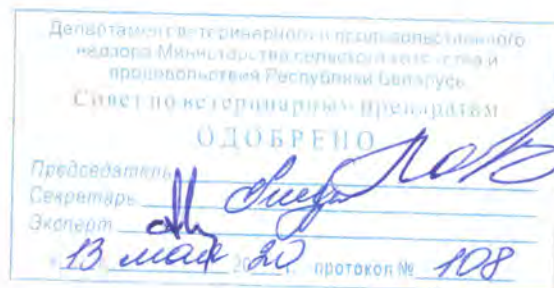 Департамент ветеринарного и продовольственного
надзора Министерства сельского хозяйства и
продовольствия Республики Беларусь
Совет по ветеринарным препаратам
ОДОБРЕНО
Председатель
Секретарь
Эксперт
13 мая 2020 г. протокол № 108